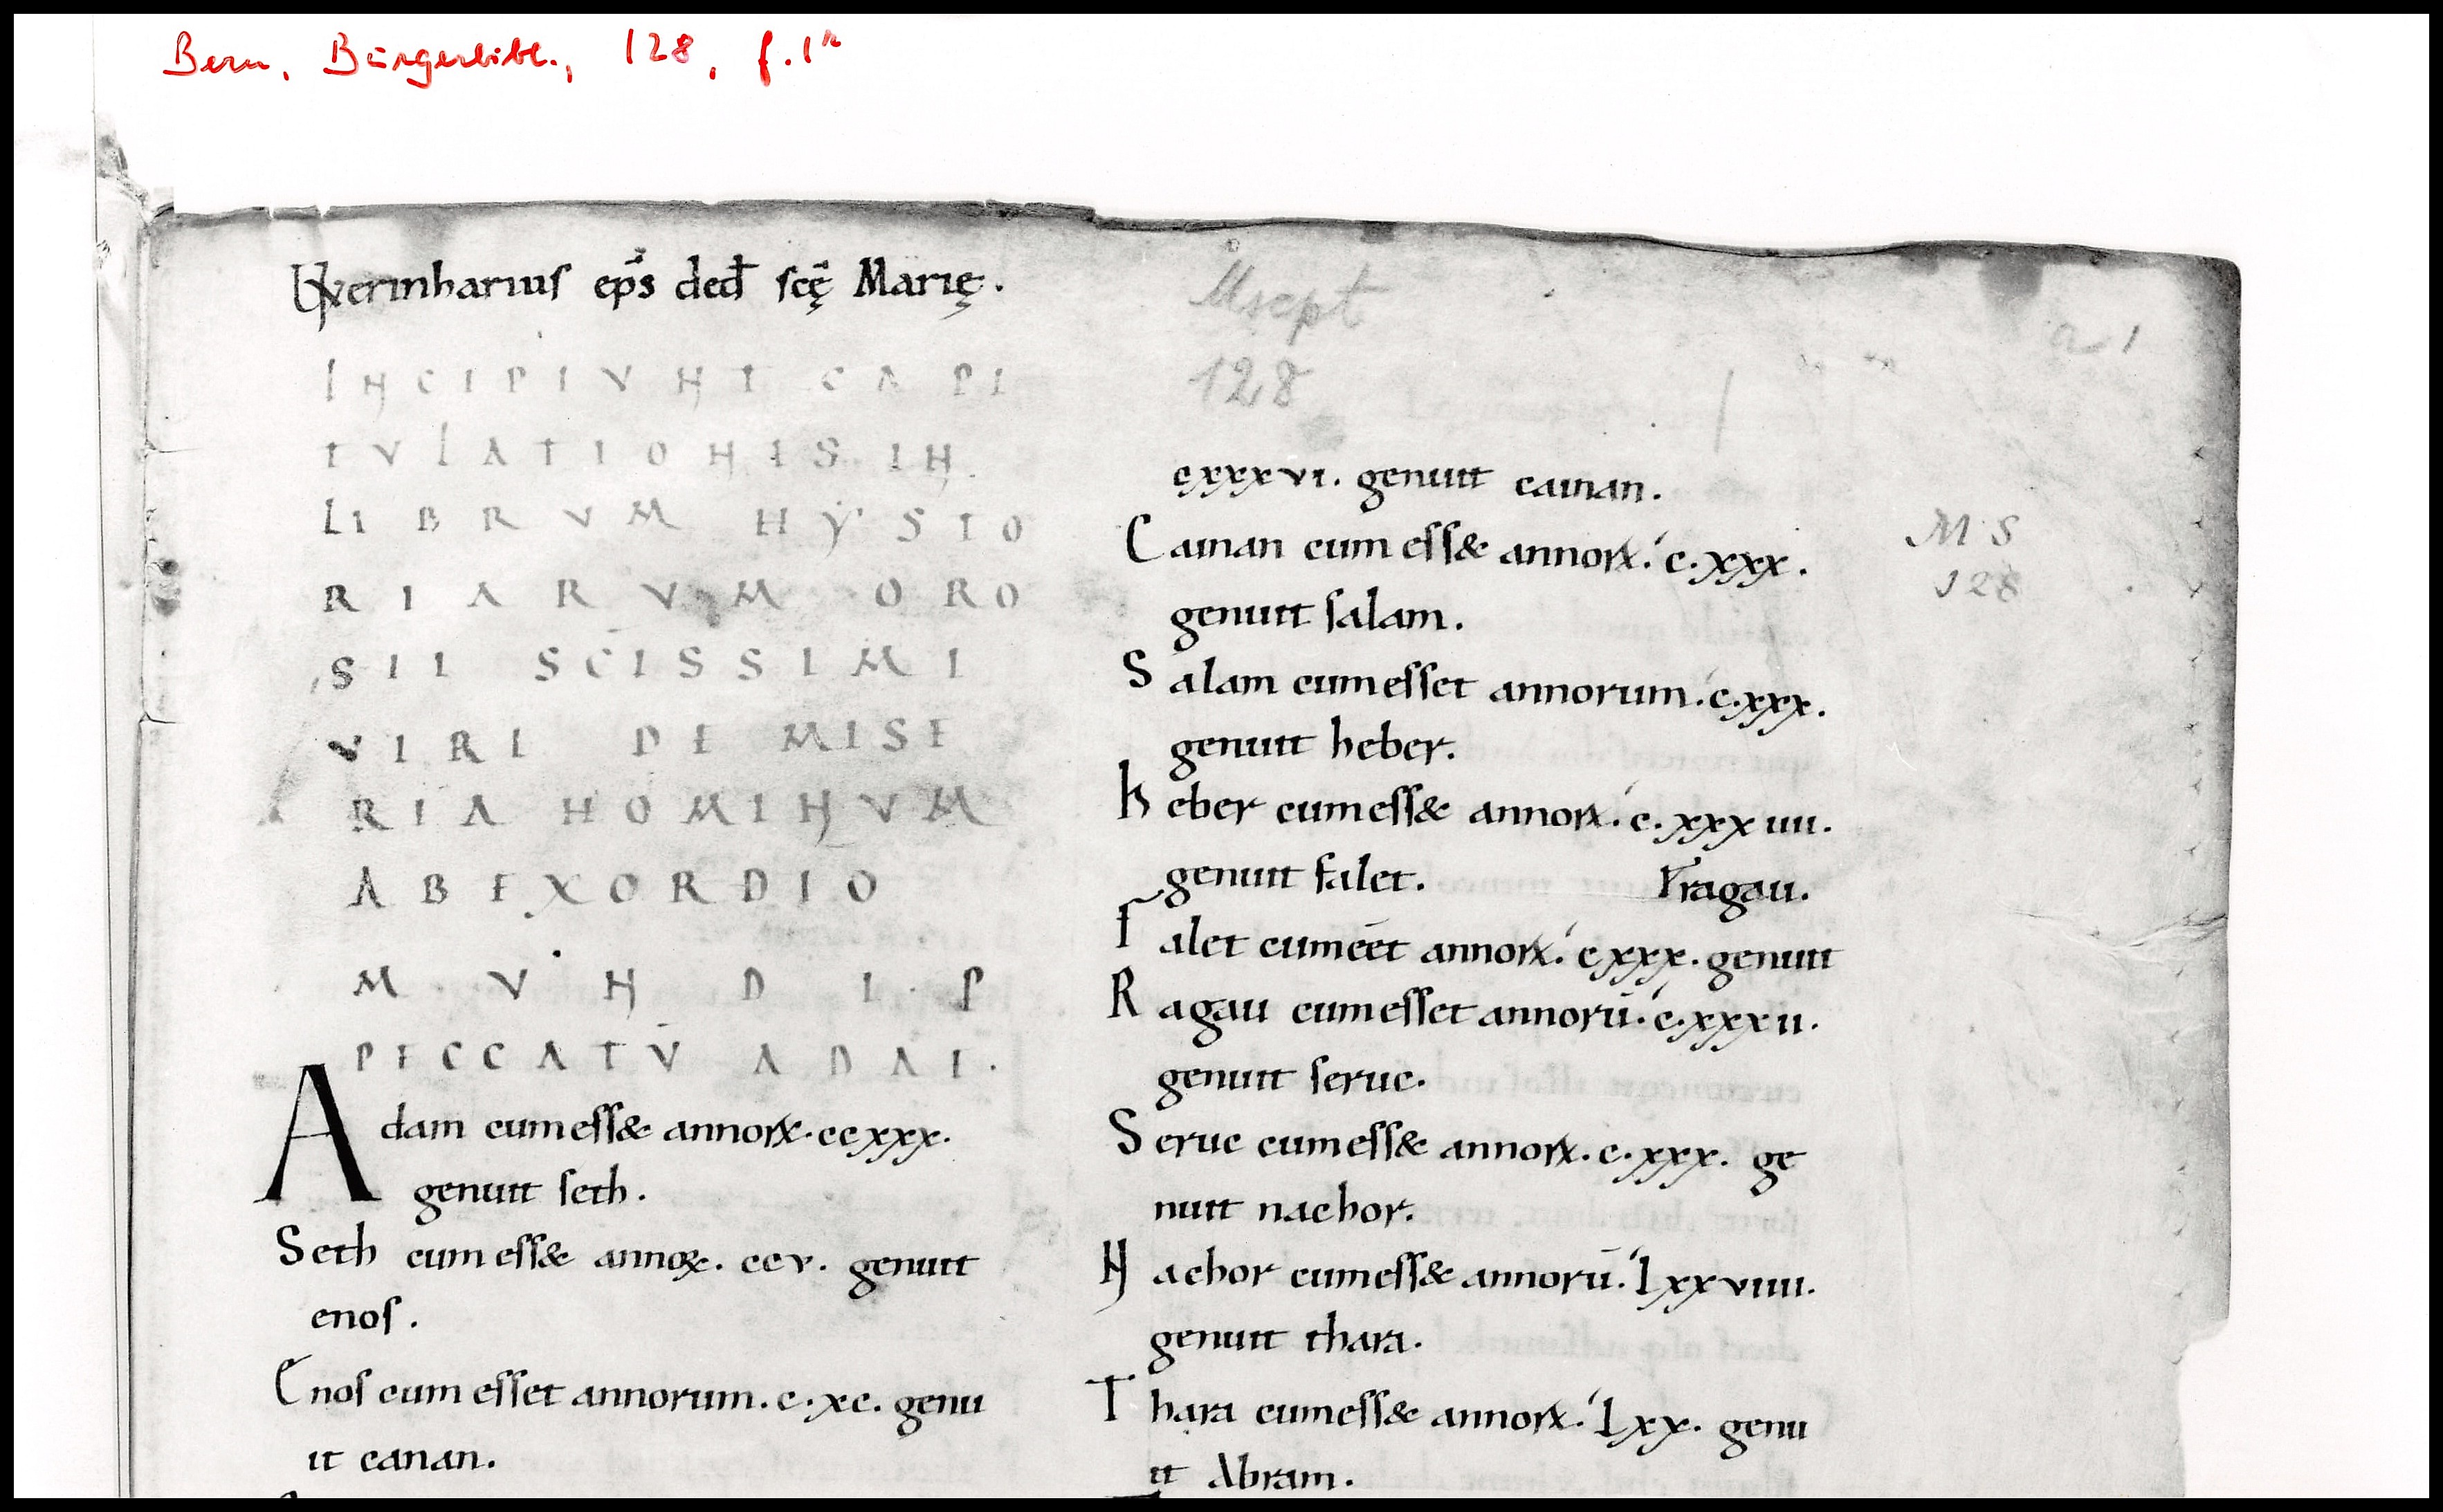 Bern, Bürgerbibl., 128, f. 1r
VVerinharius ep̄s ded̄ scę̄ Marię.
INCIPIVNT CAPI
TVLATIONIS IN
LIBRVM HYSTO
RIARVM ORO
SII SC̄ISSIMI
VIRI DE MISE
RIA HOMINVM
AB EXORDIO
MVNDI P
PECCATV̄ ADAE.
Adam cum ess& annoꝝ. ccxxx.
genuit seth.
Seth cum ess& annoꝝ. ccv. genuit
enos.
Enos cum esset annorum. c.xc. genu
it canan.
Mscpt
128
a 1
cxxxvi. genuit cainan.
Cainan cum ess& annoꝝ. c.xxx.
genuit salam.
Salam cum esset annorum. c.xxx.
genuit heber.
Heber cum ess& annoꝝ. c.xxxiiii.
genuit falet.
Falet cum eēt annoꝝ. cxxx. genuit
ragau.
Ragau cum esset annorū. c.xxxii.
genuit seruc.
Seruc cum ess& annoꝝ. c.xxx. ge
nuit nachor.
Nachor cum ess& annorū. lxxviiii.
genuit thara.
Thara cum ess& annoꝝ. lxx. genu
it Abram.
MS
128